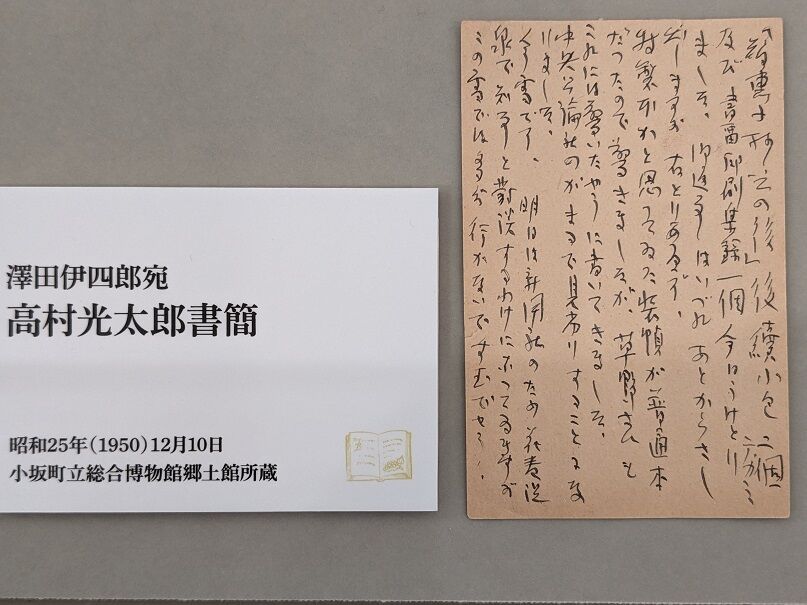 澤田伊四郎宛
高村光太郎書簡
昭和25年(1950)12月10日
小坂町立総合博物館郷土館所蔵
「智恵子抄その後」後續小包二個
及び書留印刷 一個今日うけとり
ました。御返事はいづれあとからさし
出しますが右とりあへず、
特製本かと思つてゐた装幀が普通本
だつたので驚きましたが、草野さんも
これには驚いたやうに書いてきました。
中央公論社のがまるで見劣りすることにな
りました。
今雪です、明日は新聞社のため花巻温
泉で知事と對談するわけになつてゐますが
この雪では多分行かないですむでせう、